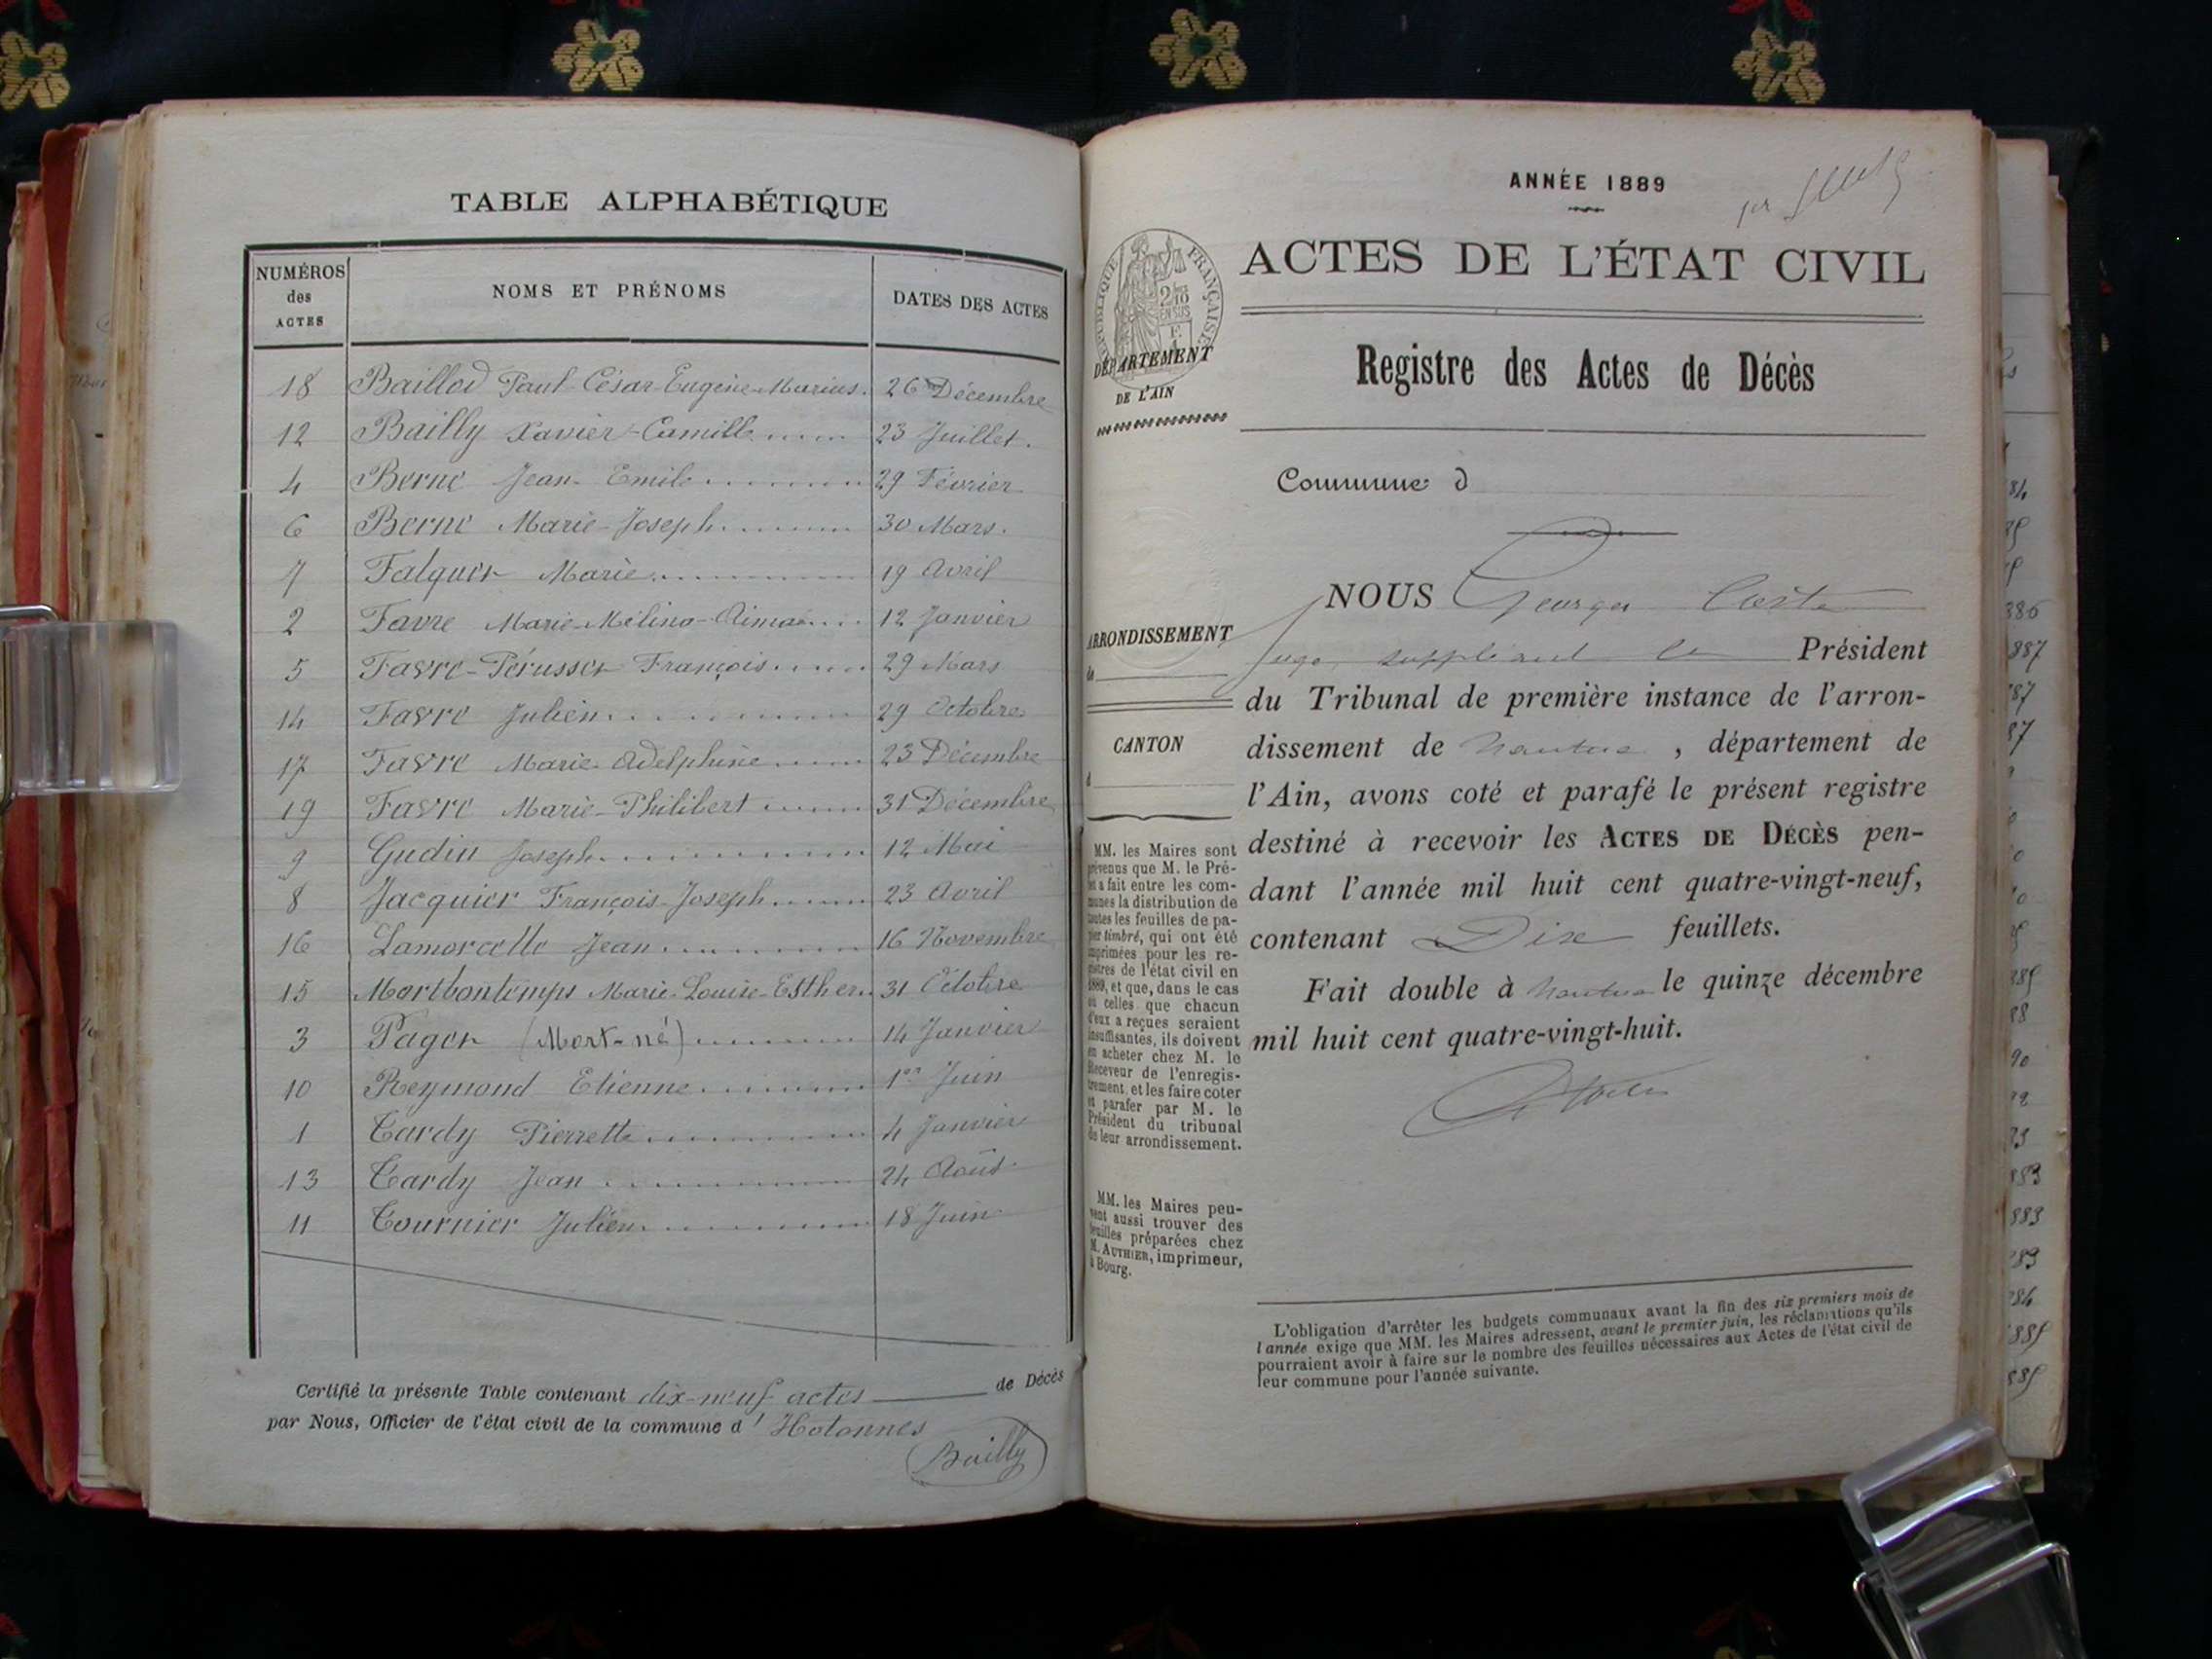 TABLE ALPHABÉTIQUE
NUMÉROS des ACTES NOMS ET PRÉNOMS DATES DES ACTES
18 Baillod Paul-César-Eugène-Marius. 26 Décembre
12 Bailly Xavier-Camille 23 Juillet.
4 Berne Jean-Emile 29 Février
6 Berne Marie-Joseph 30 Mars.
7 Falquet Marie 19 Avril
2 Favre Marie-Mélina-Aimée 12 Janvier
5 Favre-Pérusset François 29 Mars
14 Favre Julien 29 Octobre
17 Favre Marie-Adelphine 23 Décembre
19 Favre Marie-Philibert 31 Décembre
9 Gudin Joseph 12 Mai
8 Jacquier François-Joseph 23 Avril
16 Lamercelle Jean 16 Novembre
15 Mortbontemps Marie-Louise-Esther 31 Octobre
3 Pager (Mort-né) 14 Janvier
10 Reymond Etienne 1er Juin
1 Tardy Pierrette 4 Janvier
13 Tardy Jean 24 Août
11 Tournier Julien 18 Juin
Certifié la présente Table contenant dix-neuf actes de Décès
par Nous, Officier de l'état civil de la commune d'Hotonnes
Bailly
ANNÉE 1889
RÉPUBLIQUE FRANÇAISE
2/10 EN SUS
ACTES DE L'ÉTAT CIVIL
DÉPARTEMENT
DE L'AIN
Registre des Actes de Décès
Commune d
NOUS Georges Coste
ARRONDISSEMENT
de
Juge suppléant le Président
du Tribunal de première instance de l'arron-
dissement de Nantua, département de
CANTON
d
l'Ain, avons coté et parafé le présent registre
destiné à recevoir les ACTES DE DÉCÈS pen-
dant l'année mil huit cent quatre-vingt-neuf,
contenant Dix feuillets.
Fait double à Nantua le quinze décembre
mil huit cent quatre-vingt-huit.
MM. les Maires sont
prévenus que M. le Pré-
fet a fait entre les com-
munes la distribution de
toutes les feuilles de pa-
pier timbré, qui ont été
imprimées pour les re-
gistres de l'état civil en
1889, et que, dans le cas
où celles que chacun
d'eux a reçues seraient
insuffisantes, ils doivent
en acheter chez M. le
Receveur de l'enregis-
trement, et les faire coter
et parafer par M. le
Président du tribunal
de leur arrondissement.
MM. les Maires peu-
vent aussi trouver des
feuilles préparées chez
M. AUTHIER, imprimeur,
à Bourg.
L'obligation d'arrêter les budgets communaux avant la fin des six premiers mois de
l'année exige que MM. les Maires adressent, avant le premier juin, les réclamations qu'ils
pourraient avoir à faire sur le nombre des feuilles nécessaires aux Actes de l'état civil de
leur commune pour l'année suivante.